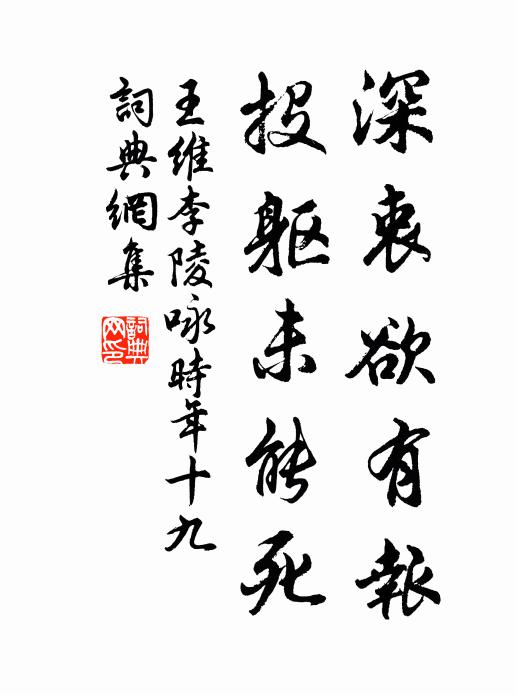 深衷欲有報
投軀未能死
王維李陵咏時年十九
詞典網集
詞典網印